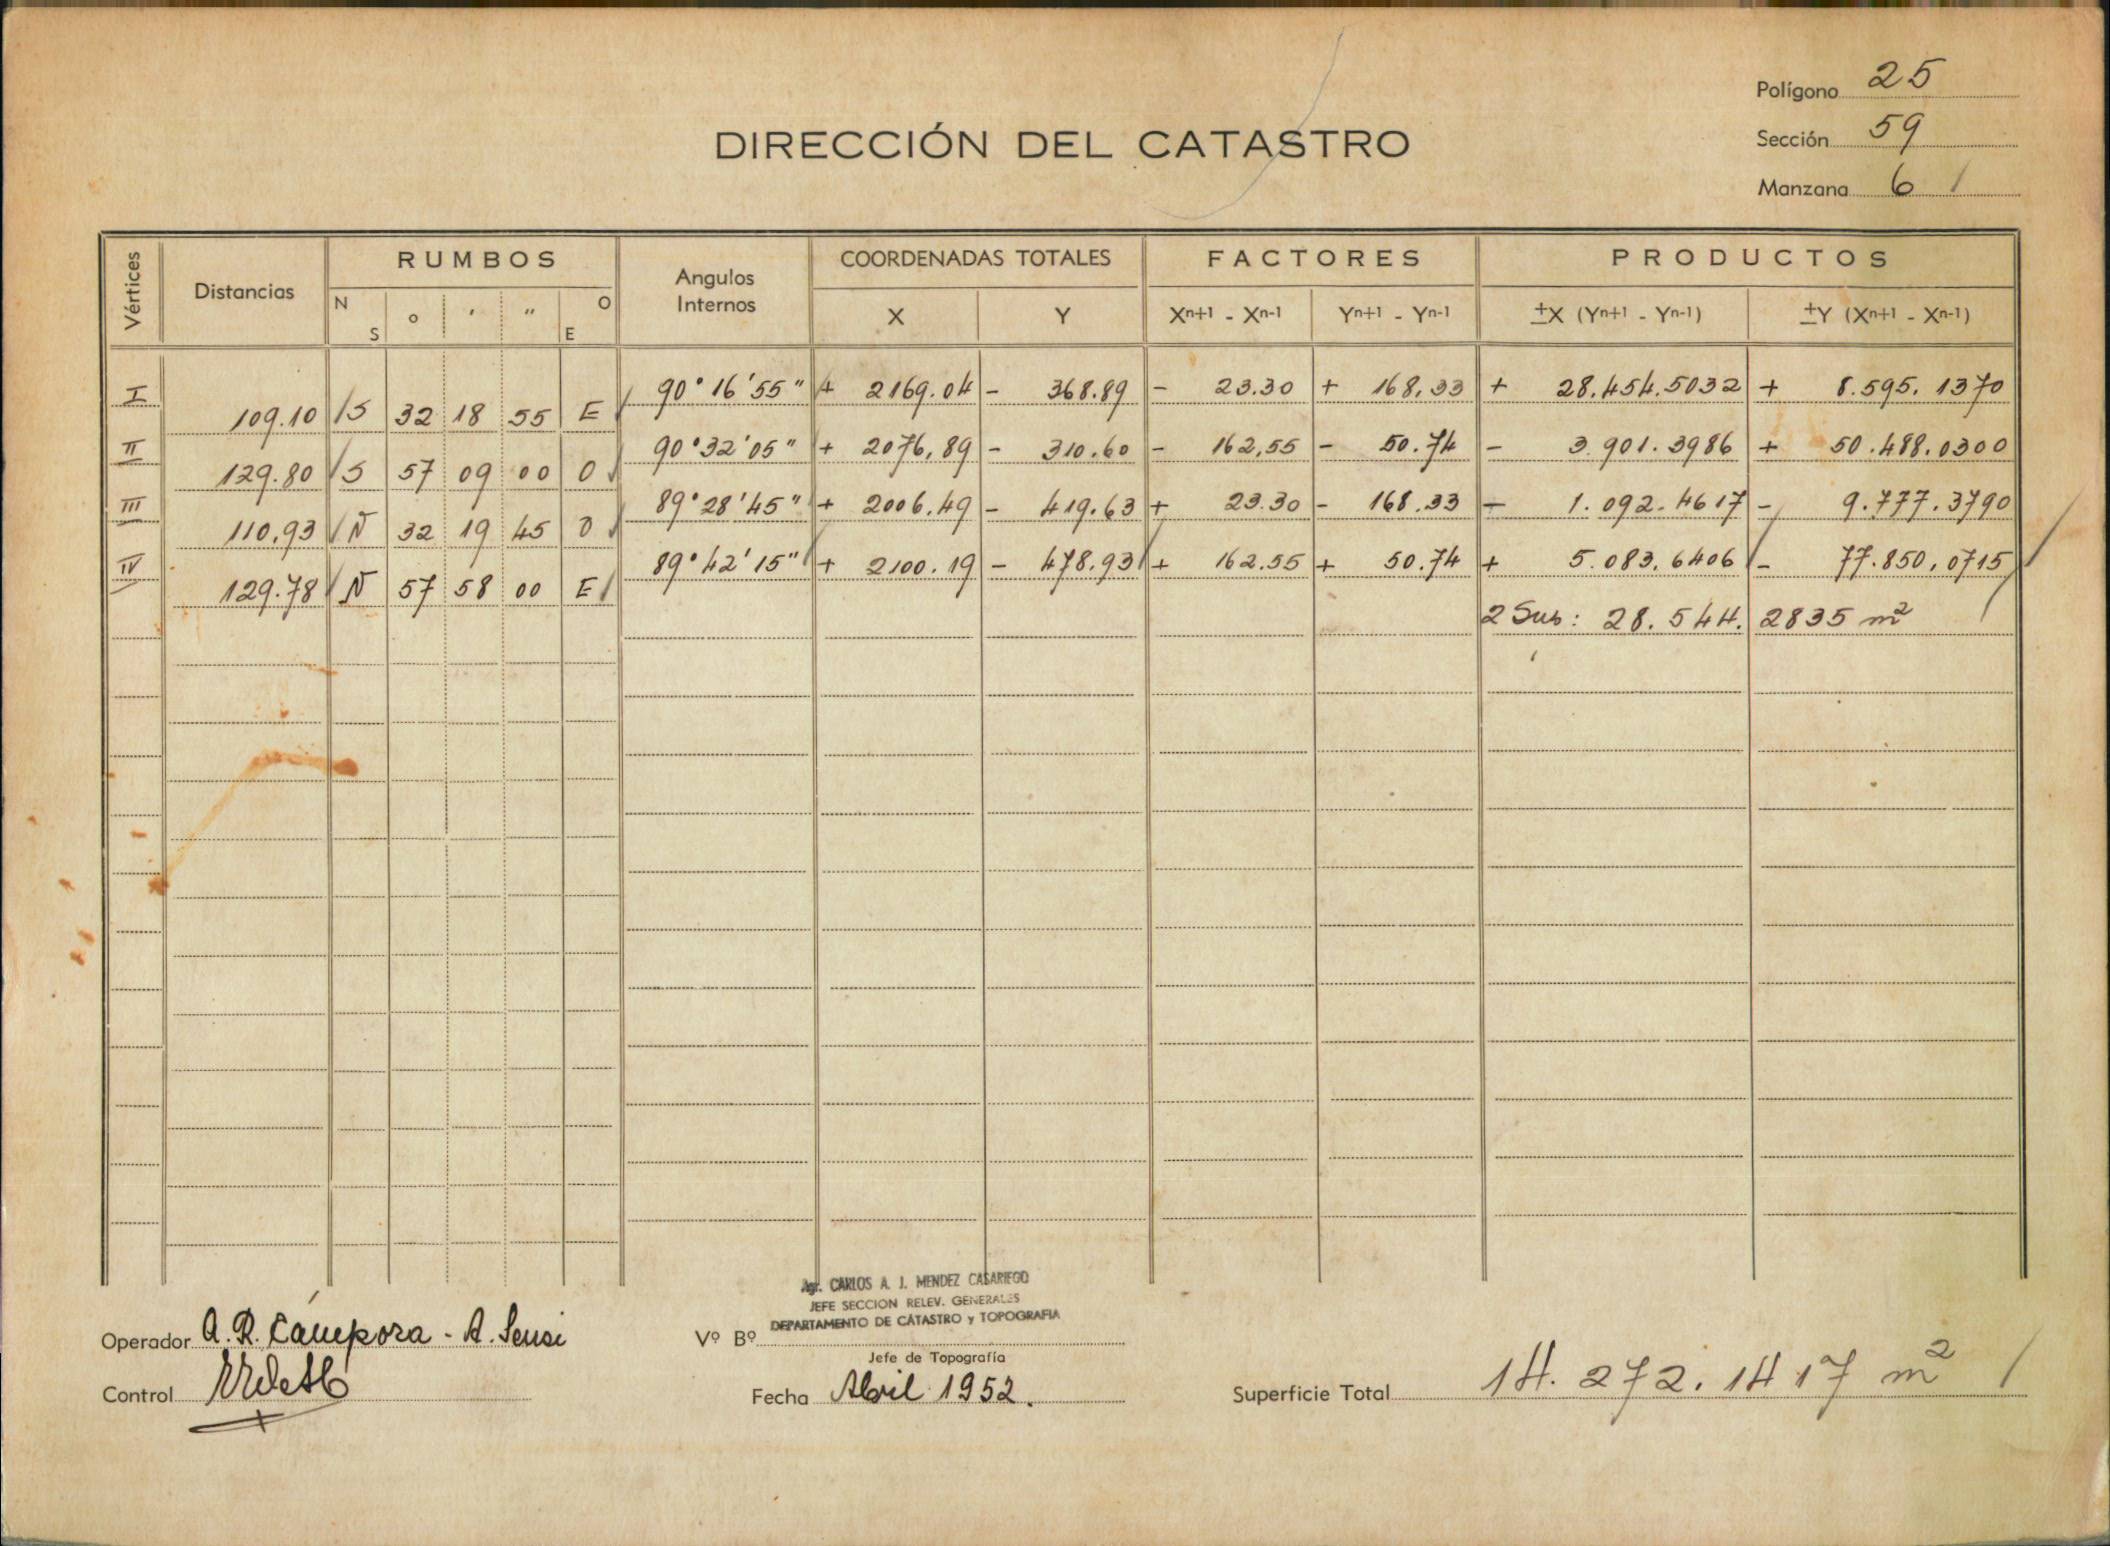 Polígono 25
DIRECCIÓN DEL CATASTRO
Sección 59
Manzana 6
Vértices Distancias RUMBOS Angulos Internos COORDENADAS TOTALES FACTORES PRODUCTOS
N S o ' " O E X Y Xn+1 - Xn-1 Yn+1 - Yn-1 ±X (Yn+1 - Yn-1) ±Y (Xn+1 - Xn-1)
I 90° 16' 55" + 2169.04 - 368.89 - 23.30 + 168,33 + 28.454.5032 + 8.595.1370
109.10 S 32 18 55 E
II 90° 32' 05" + 2076,89 - 310.60 - 162,55 - 50.74 - 3.901.3986 + 50.488.0300
129.80 S 57 09 00 O
III 89° 28' 45" + 2006.49 - 419.63 + 23.30 - 168.33 - 1.092.4617 - 9.777.3790
110,93 N 32 19 45 O
IV 89° 42' 15" + 2100.19 - 478.93 + 162.55 + 50.74 + 5.083,6406 - 77.850,0715
129.78 N 57 58 00 E
2 Sup: 28.544.2835 m²
Agr. CARLOS A. J. MENDEZ CASARIEGO
JEFE SECCION RELEV. GENERALES
DEPARTAMENTO DE CATASTRO y TOPOGRAFIA
Operador A. R. Cámpora - A. Sensi Vº Bº
Jefe de Topografía
Control Fecha Abril 1952. Superficie Total 14.272.1417 m²